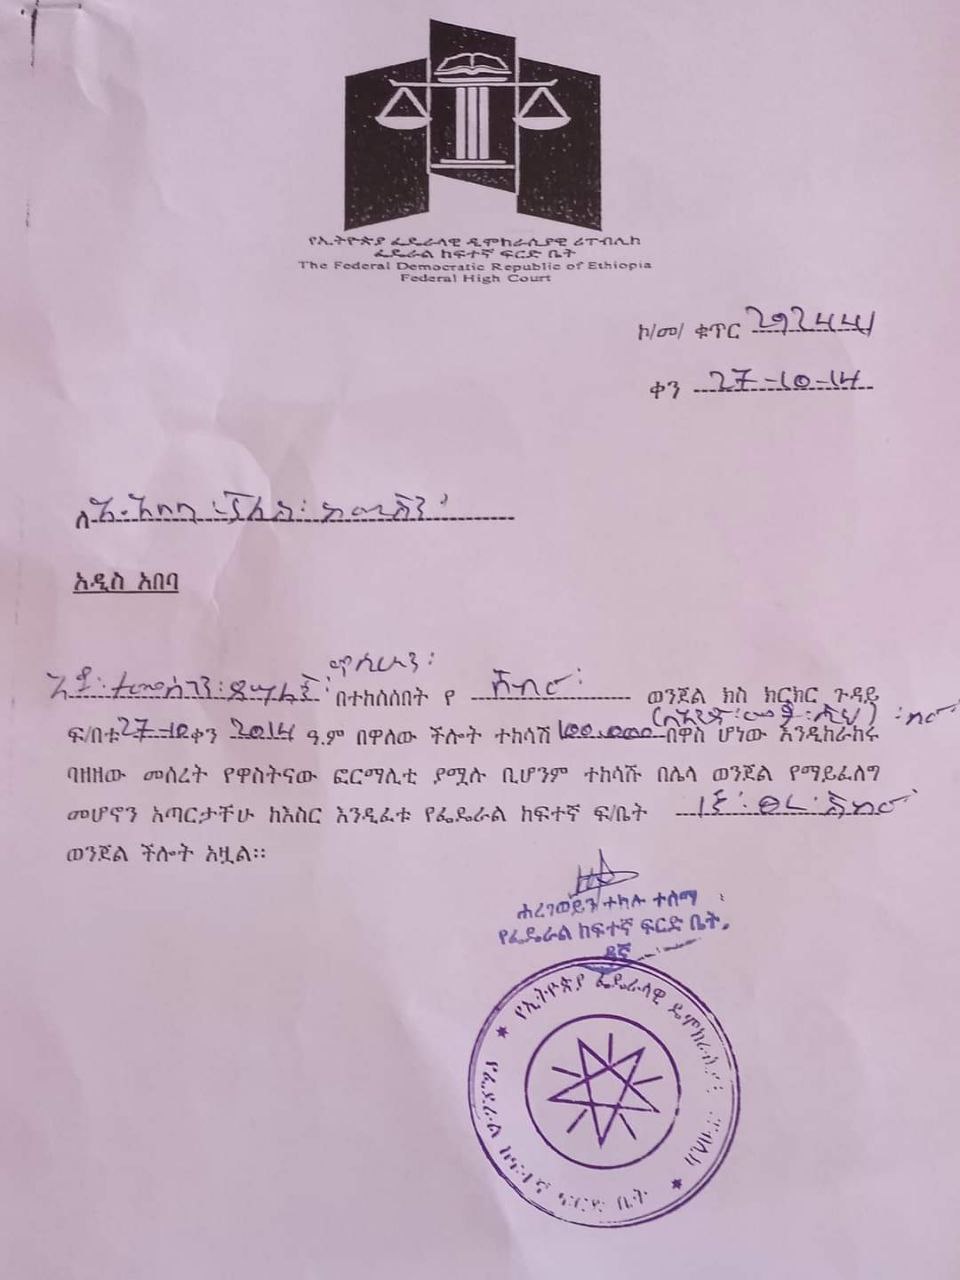 የኢትዮጵያ ፌዴራላዊ ዲሞክራሲያዊ ሪፐብሊክ
ፌዴራል ከፍተኛ ፍርድ ቤት
The Federal Democratic Republic of Ethiopia
Federal High Court
ኮ/መ/ ቁጥር
ቀን 27-10-14
ለ አ.አበባ ፖሊስ ኮሚሽን
አዲስ አበባ
አቶ ተመስገን ደሳለኝ በተከሰሰበት የ ወንጀል ክስ ክርክር ጉዳይ
(አንድ መቶ ሺህ) ብር
ፍ/ቤቱ 27-10 ቀን 2014 ዓ.ም በዋለው ችሎት ተከሳሽ 100.000 በዋስ ሆነው እንዲከራከሩ
ባዘዘው መሰረት የዋስትናው ፎርማሊቲ ያሟሉ ቢሆንም ተከሳሹ በሌላ ወንጀል የማይፈለግ
መሆኖን አጣርታችሁ ከእስር እንዲፈቱ የፌዴራል ከፍተኛ ፍ/ቤት
ወንጀል ችሎት አዟል፡፡
ሐረገወይን ተክሉ ተሰማ
የፌዴራል ከፍተኛ ፍርድ ቤት
ዳኛ
የኢትዮጵያ ፌዴራላዊ ዴሞክራሲያዊ ሪፐብሊክ
የፌዴራል ከፍተኛ ፍርድ ቤት